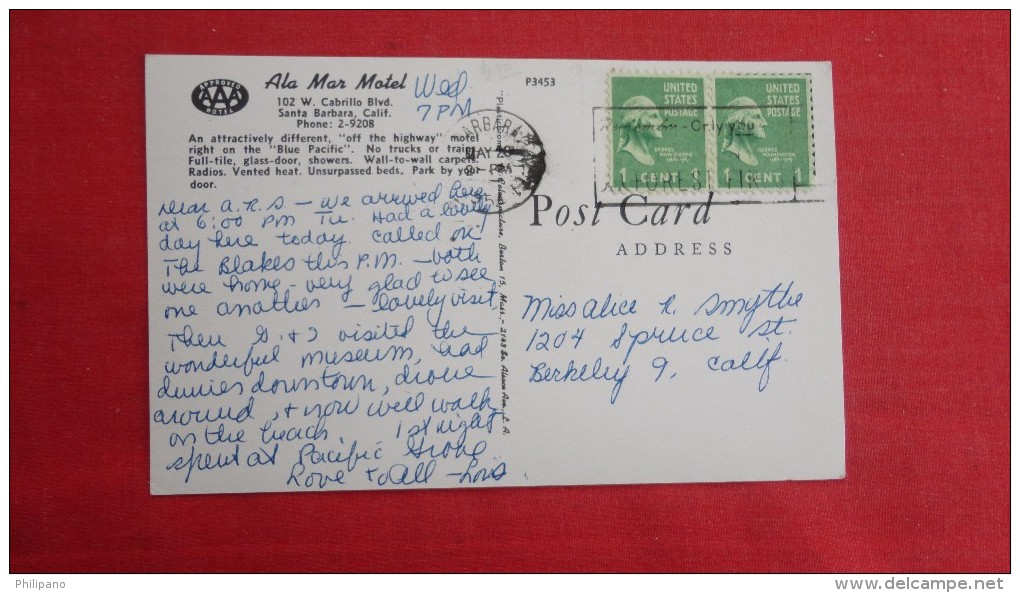 APPROVED
AAA
MOTEL
Ala Mar Motel
102 W. Cabrillo Blvd.
Santa Barbara, Calif.
Phone: 2-9208
An attractively different, "off the highway" motel
right on the "Blue Pacific". No trucks or trains.
Full-tile, glass-door, showers. Wall-to-wall carpets.
Radios. Vented heat. Unsurpassed beds, Park by your
door.
Wed
7 PM
Dear A.R.S — We arrived here
at 6:00 PM Tu. Had a lovely
day here today. Called on
The Blakes this P.M. — both
were home — very glad to see
one another — lovely visit.
Then G. + I visited the
wonderful museum, had
dinner downtown, drove
around, + now will walk
on the beach. 1st night
spent at Pacific Grove
Love to All — Lois
P3453
Boston 15, Mass.,
L. A.
BARBARA
MAY 28
PM
UNITED
STATES
POSTAGE
GEORGE
WASHINGTON
1 CENT 1
UNITED
STATES
POSTAGE
GEORGE
WASHINGTON
1 CENT 1
Only you
Post Card
ADDRESS
Miss Alice R. Smythe
1204 Spruce St.
Berkeley 9, Calif
Philipano
www.delcampe.net